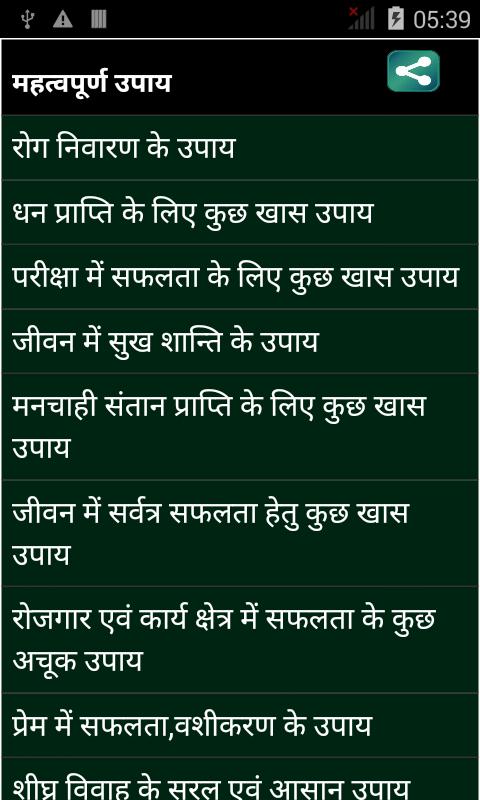 05:39
महत्वपूर्ण उपाय
रोग निवारण के उपाय
धन प्राप्ति के लिए कुछ खास उपाय
परीक्षा में सफलता के लिए कुछ खास उपाय
जीवन में सुख शान्ति के उपाय
मनचाही संतान प्राप्ति के लिए कुछ खास
उपाय
जीवन में सर्वत्र सफलता हेतु कुछ खास
उपाय
रोजगार एवं कार्य क्षेत्र में सफलता के कुछ
अचूक उपाय
प्रेम में सफलता,वशीकरण के उपाय
शीघ्र विवाह के सरल एवं आसान उपाय